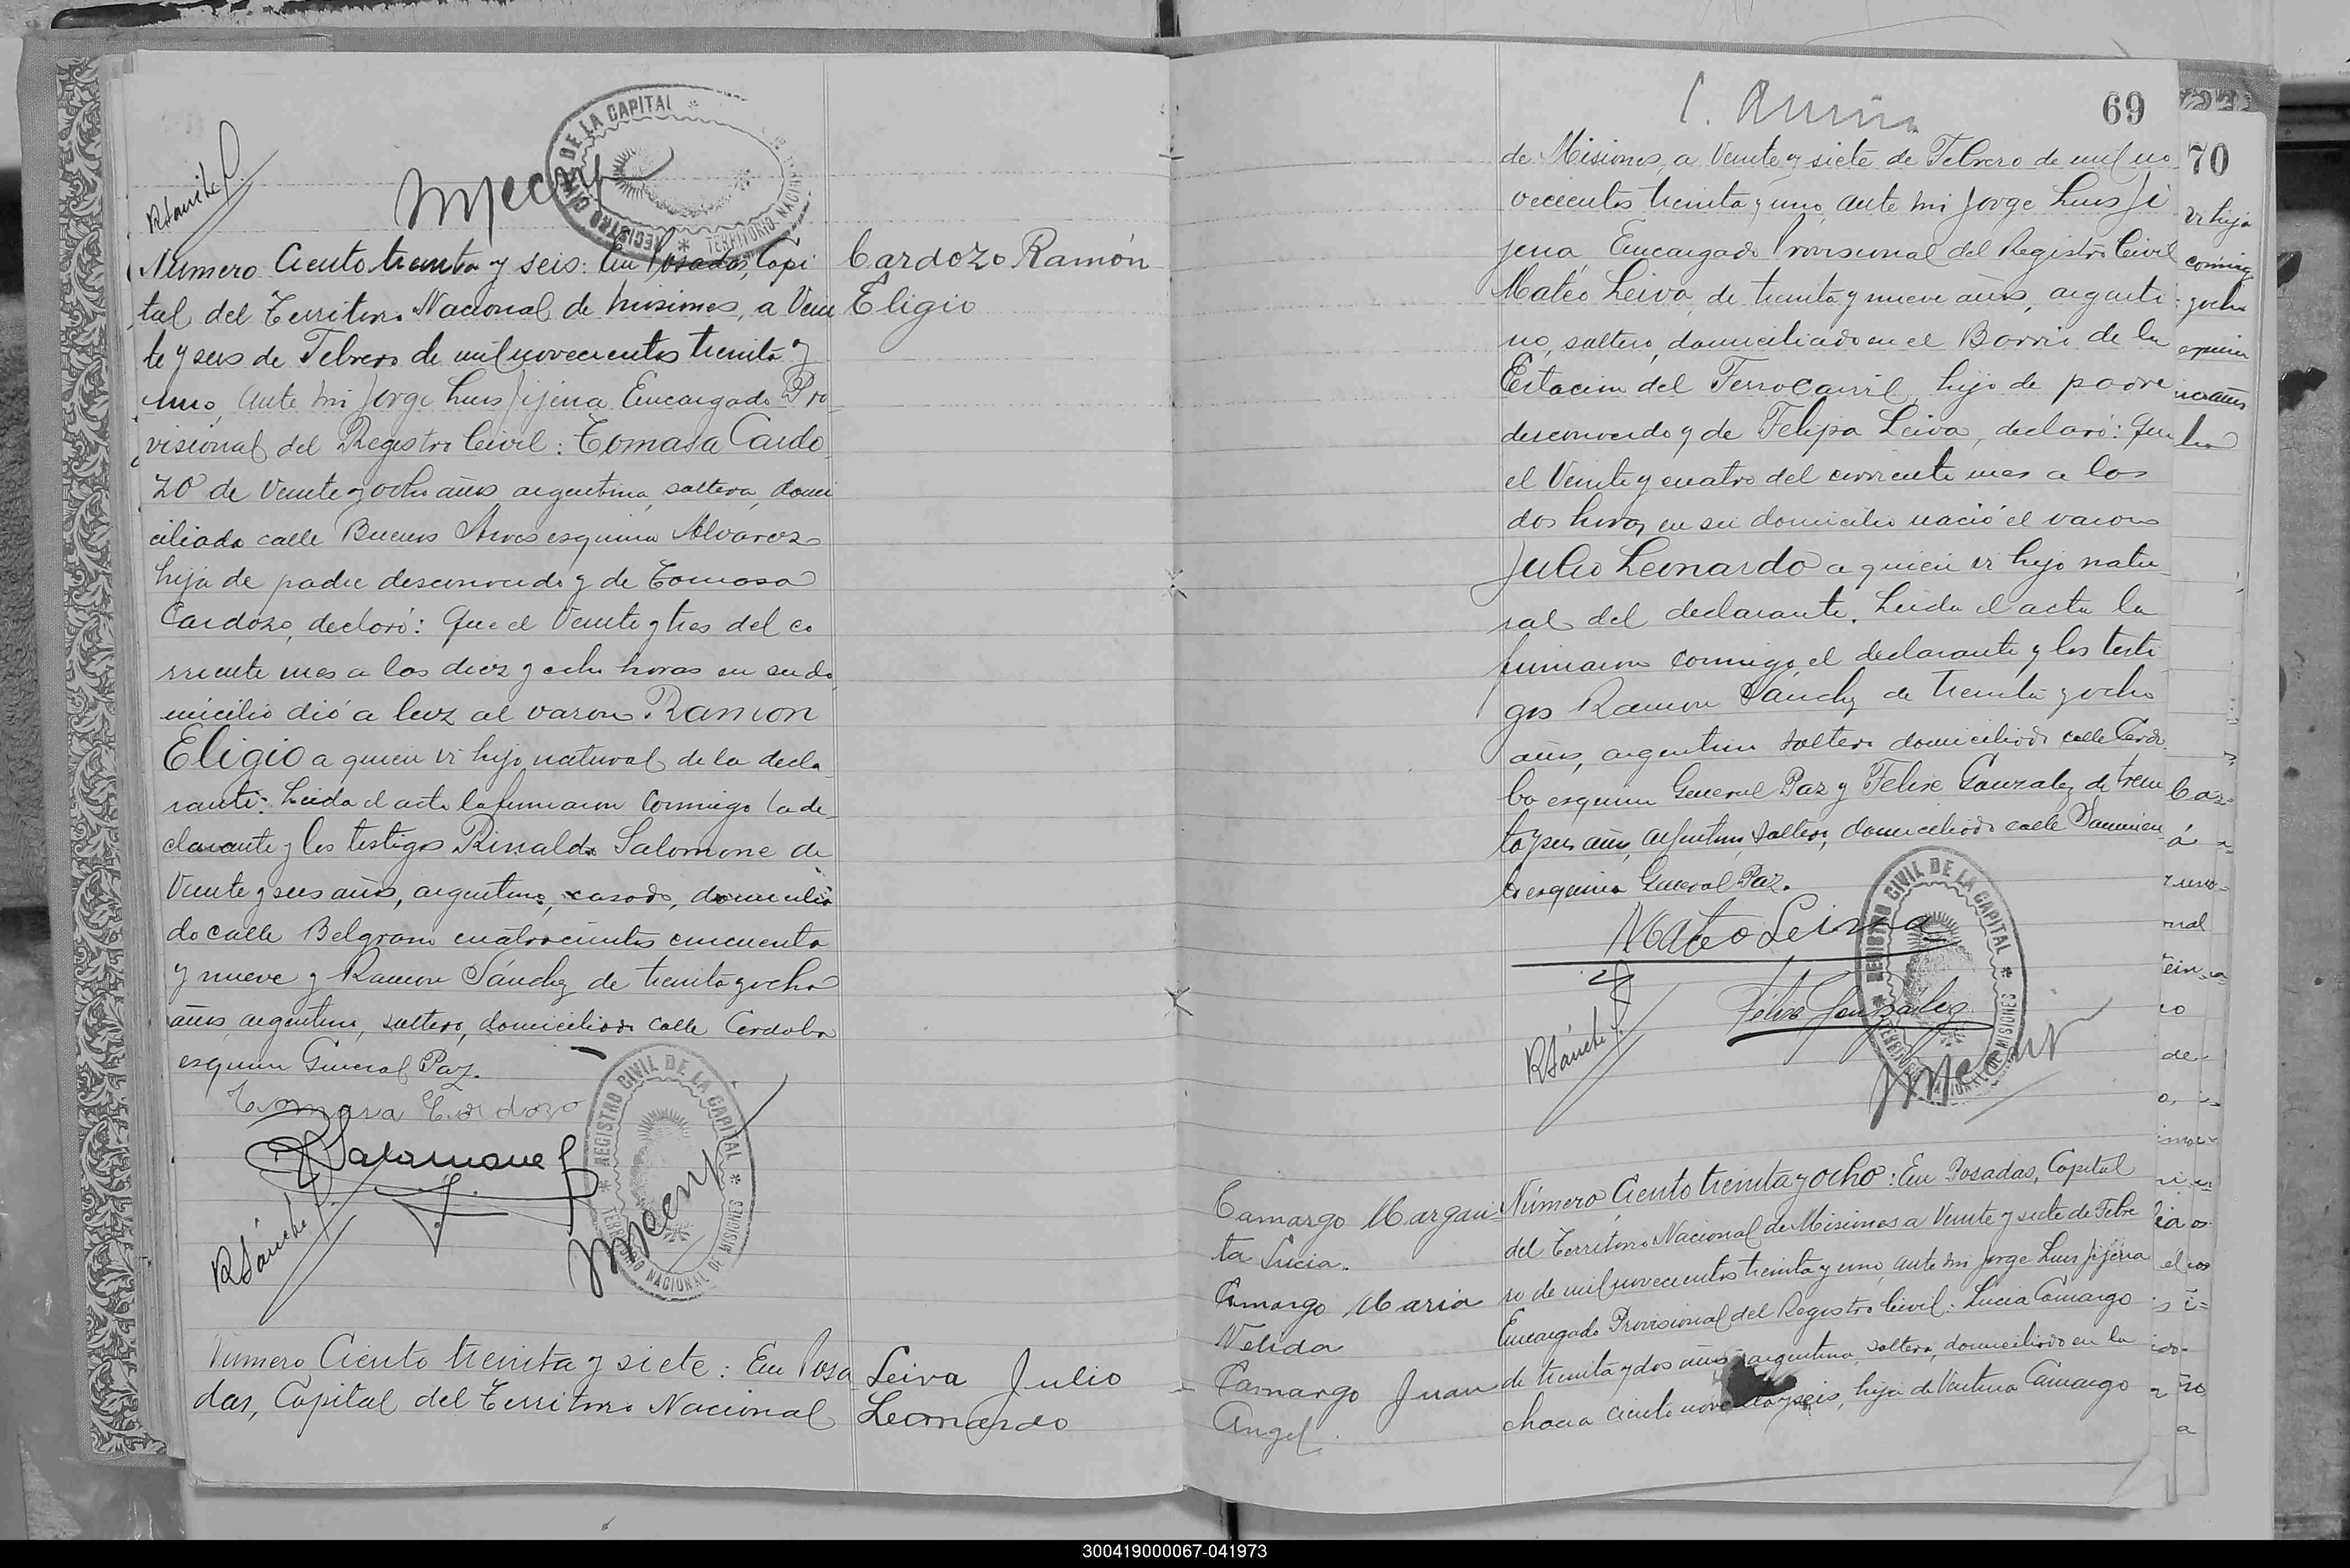 RSánchez
REGISTRO CIVIL DE LA CAPITAL
TERRITORIO NACIONAL
Número Ciento treinta y seis: En Posadas, Capi
tal del Territorio Nacional de Misiones, a Vein
te y seis de Febrero de mil novecientos treinta y
uno, ante mi Jorge Luis Jijena Encargado Pro-
visional del Registro Civil: Tomasa Cardo
zo de Veinte y ocho años argentina, soltera, domi
ciliada calle Buenos Aires esquina Alvarez
hija de padre desconocido y de Tomasa
Cardozo, declaró: Que el Veinte y tres del co
rriente mes a las diez y ocho horas en su do
micilio dió a luz al varon Ramon
Eligio a quien vi hijo natural de la decla-
rante. Leida el acta la firmaron conmigo la de-
clarante y los testigos Rinaldo Salomone de
Veinte y seis años, argentino, casado, domicilia
do calle Belgrano cuatrocientos cincuenta
y nueve y Ramon Sánchez de treinta y ocho
años, argentino, soltero, domiciliado calle Cordoba
esquina General Paz.
Tomasa Cardozo
RSalomone
RSánchez
REGISTRO CIVIL DE LA CAPITAL
TERRITORIO NACIONAL DE MISIONES
Número Ciento treinta y siete: En Posa
das, Capital del Territorio Nacional
Cardozo Ramón
Eligio
Leiva Julio
Leonardo
69
de Misiones, a Veinte y siete de Febrero de mil no
vecientos treinta y uno, ante mi Jorge Luis Ji
jena Encargado Provisional del Registro Civil
Matéo Leiva, de treinta y nueve años, argenti
no, soltero, domiciliado en el Barrio de la
Estacion del Ferrocarril, hijo de padre
desconocido y de Felipa Leiva, declaró: Que
el Veinte y cuatro del corriente mes a las
dos horas en su domicilio nació el varon
Julio Leonardo a quien vi hijo natu-
ral del declarante. Leida el acta la
firmaron conmigo el declarante y los testi
gos Ramon Sánchez de treinta y ocho
años, argentino soltero domiciliado calle Cordo
ba esquina General Paz y Felix Gonzalez de trein
ta y seis años, argentino, soltero, domiciliado calle Sarmien
to esquina General Paz.
Mateo Leiva
Félix Gonzalez
RSánchez
REGISTRO CIVIL DE LA CAPITAL
TERRITORIO NACIONAL DE MISIONES
Camargo Margari
ta Lucia.
Camargo Maria
Nelida
Camargo Juan
Angel.
Número Ciento treinta y ocho: En Posadas, Capital
del Territorio Nacional de Misiones a Veinte y siete de Febre
ro de mil novecientos treinta y uno, ante mi Jorge Luis Jijena
Encargado Provisional del Registro Civil: Lucia Camargo
de treinta y dos años argentina, soltera, domiciliado en la
chacra ciento noventa y seis, hija de Ventura Camargo
70
vi hijo
conmigo
y ocho
esquina
300419000067-041973